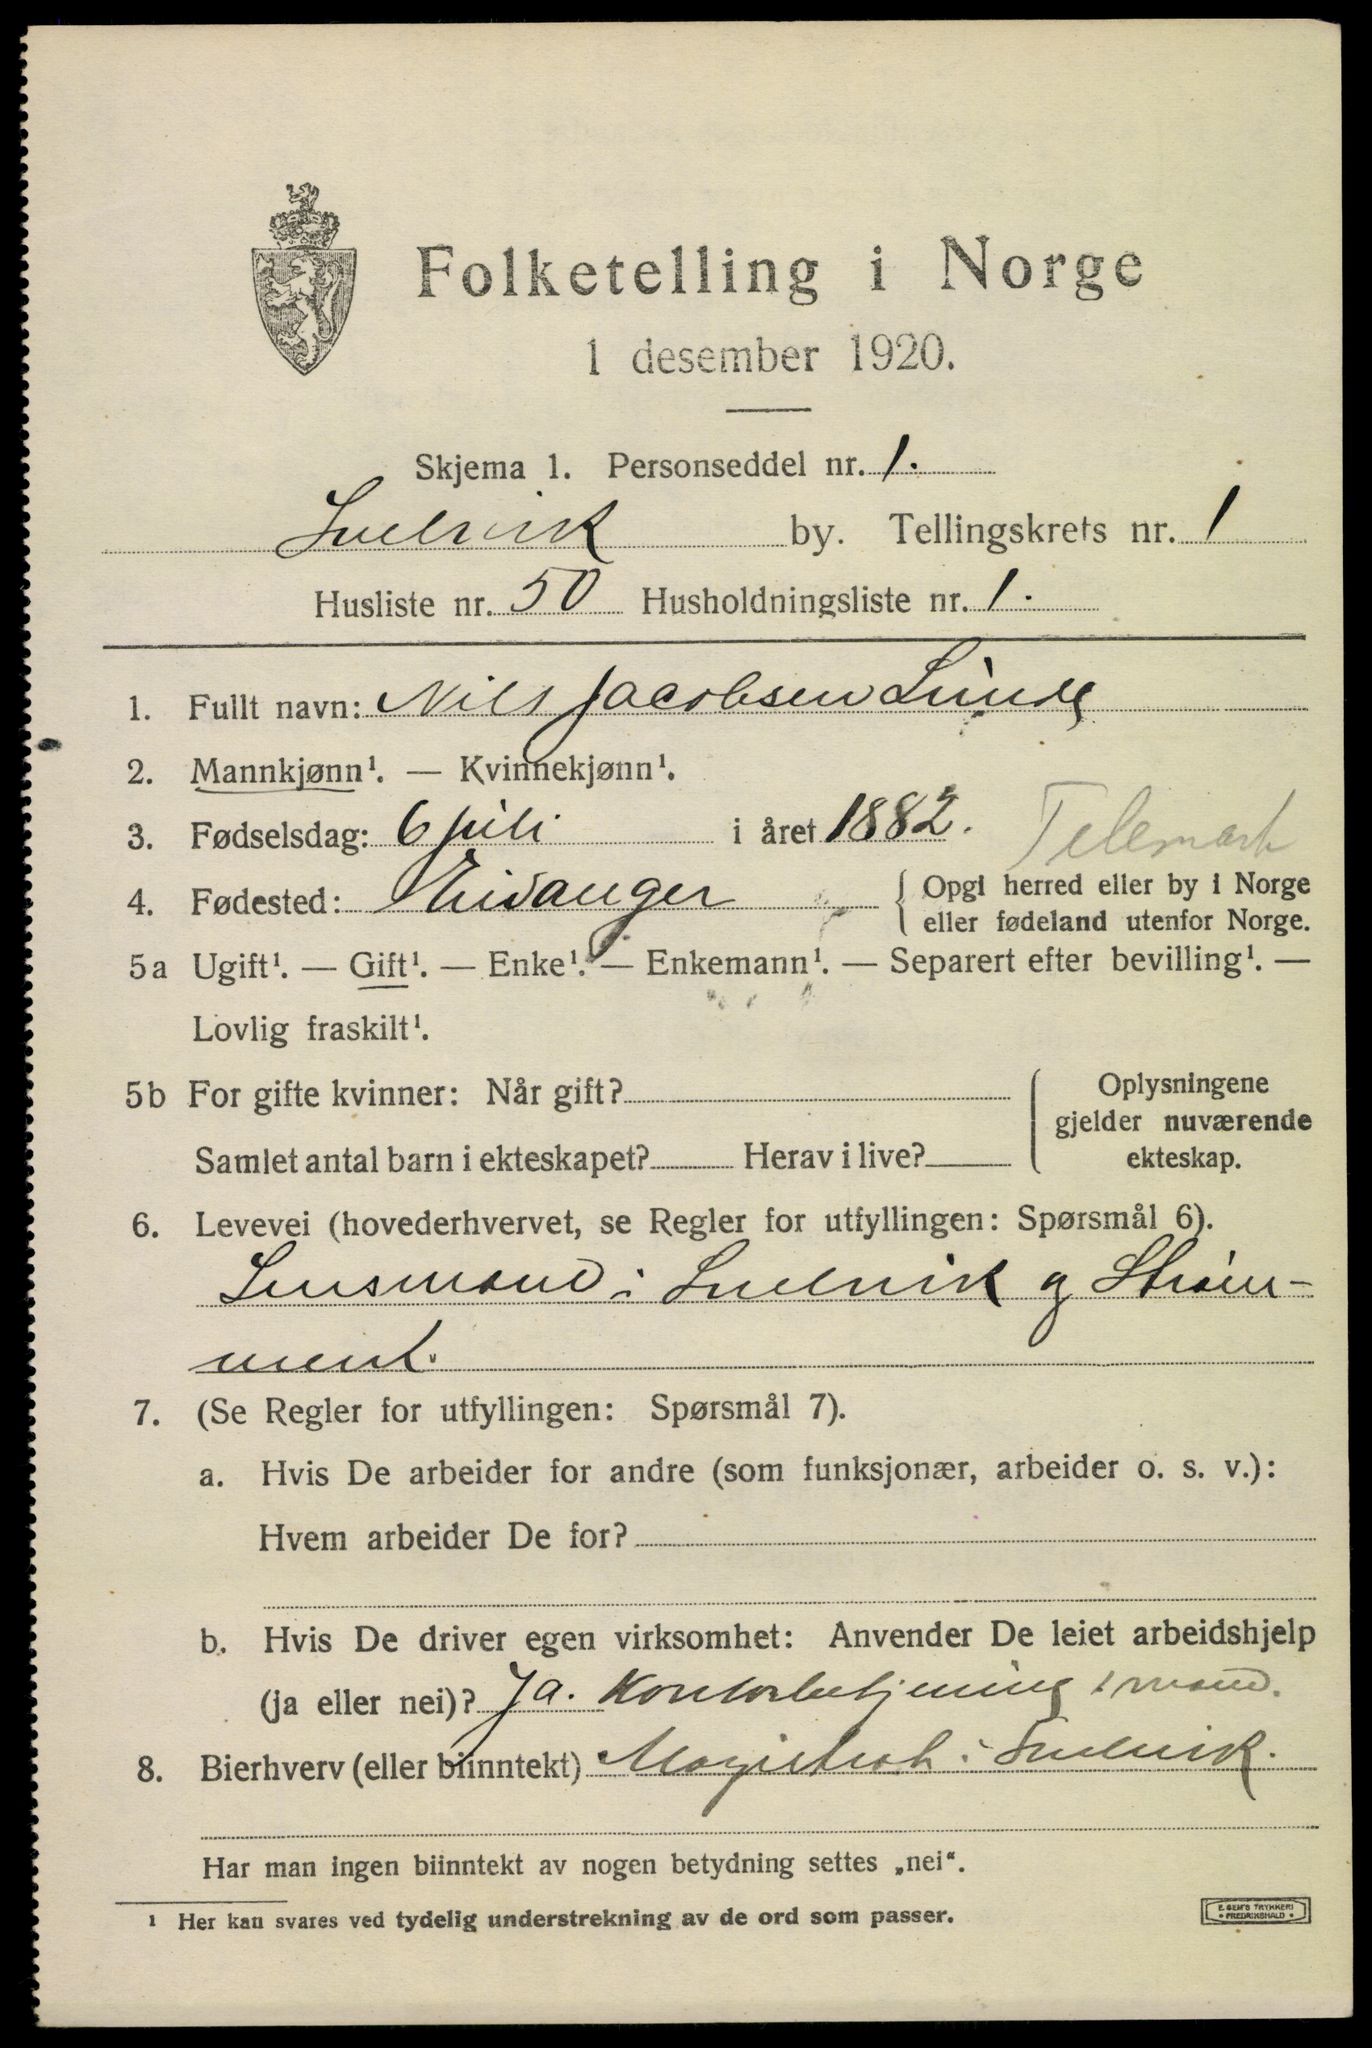 Folketelling i Norge
1 desember 1920.
Skjema 1. Personseddel nr. 1.
Svelvik by. Tellingskrets nr. 1
Husliste nr. 50 Husholdningsliste nr. 1.
1. Fullt navn: Nils Jacobsen Lunde
2. Mannkjønn¹. — Kvinnekjønn¹.
3. Fødselsdag: 6 juli i året 1882.
Telemark
4. Fødested: Eidanger { Opgi herred eller by i Norge
eller fødeland utenfor Norge.
5a Ugift¹. — Gift¹. — Enke¹. — Enkemann¹. — Separert efter bevilling¹. —
Lovlig fraskilt¹.
5b For gifte kvinner: Når gift?
Samlet antal barn i ekteskapet? Herav i live?
Oplysningene
gjelder nuværende
ekteskap.
6. Levevei (hovederhvervet, se Regler for utfyllingen: Spørsmål 6).
Lensmand i Svelvik og Strøm-
men.
7. (Se Regler for utfyllingen: Spørsmål 7).
a. Hvis De arbeider for andre (som funksjonær, arbeider o. s. v.):
Hvem arbeider De for?
b. Hvis De driver egen virksomhet: Anvender De leiet arbeidshjelp
(ja eller nei)? Ja. Kontorbetjening 1 mand.
8. Bierhverv (eller biinntekt) Magistrat i Svelvik.
Har man ingen biinntekt av nogen betydning settes „nei“.
¹ Her kan svares ved tydelig understrekning av de ord som passer.
E. SEM'S TRYKKERI
• FREDRIKSHALD •